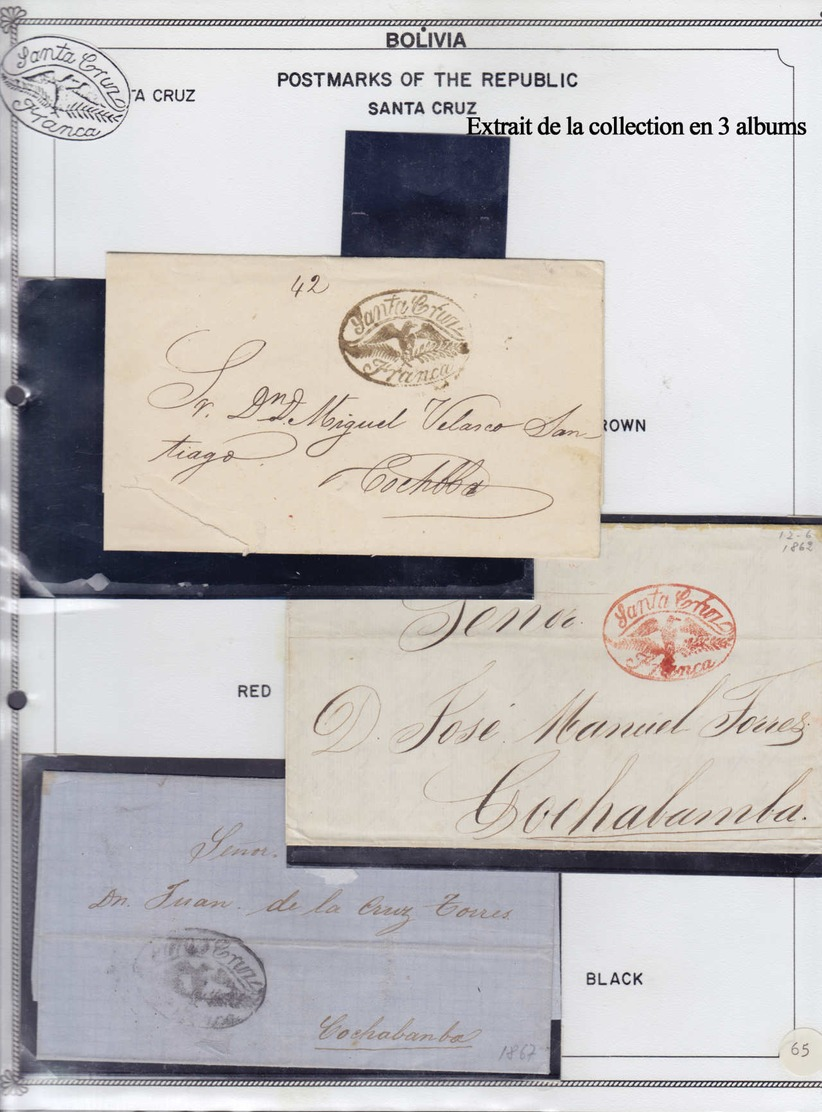 BOLIVIA
Santa Cruz
Franca
TA CRUZ
POSTMARKS OF THE REPUBLIC
SANTA CRUZ
Extrait de la collection en 3 albums
42
Santa Cruz
Franca
Sr. Dn D. Miguel Velasco San-
tiago
Cochbba
ROWN
12-6
1862
Santa Cruz
Franca
Señor
RED
D. José Manuel Torres
Cochabamba.
Señor.
Dn. Juan de la Cruz Torres
Cruz
BLACK
Cochabanba
1867
65